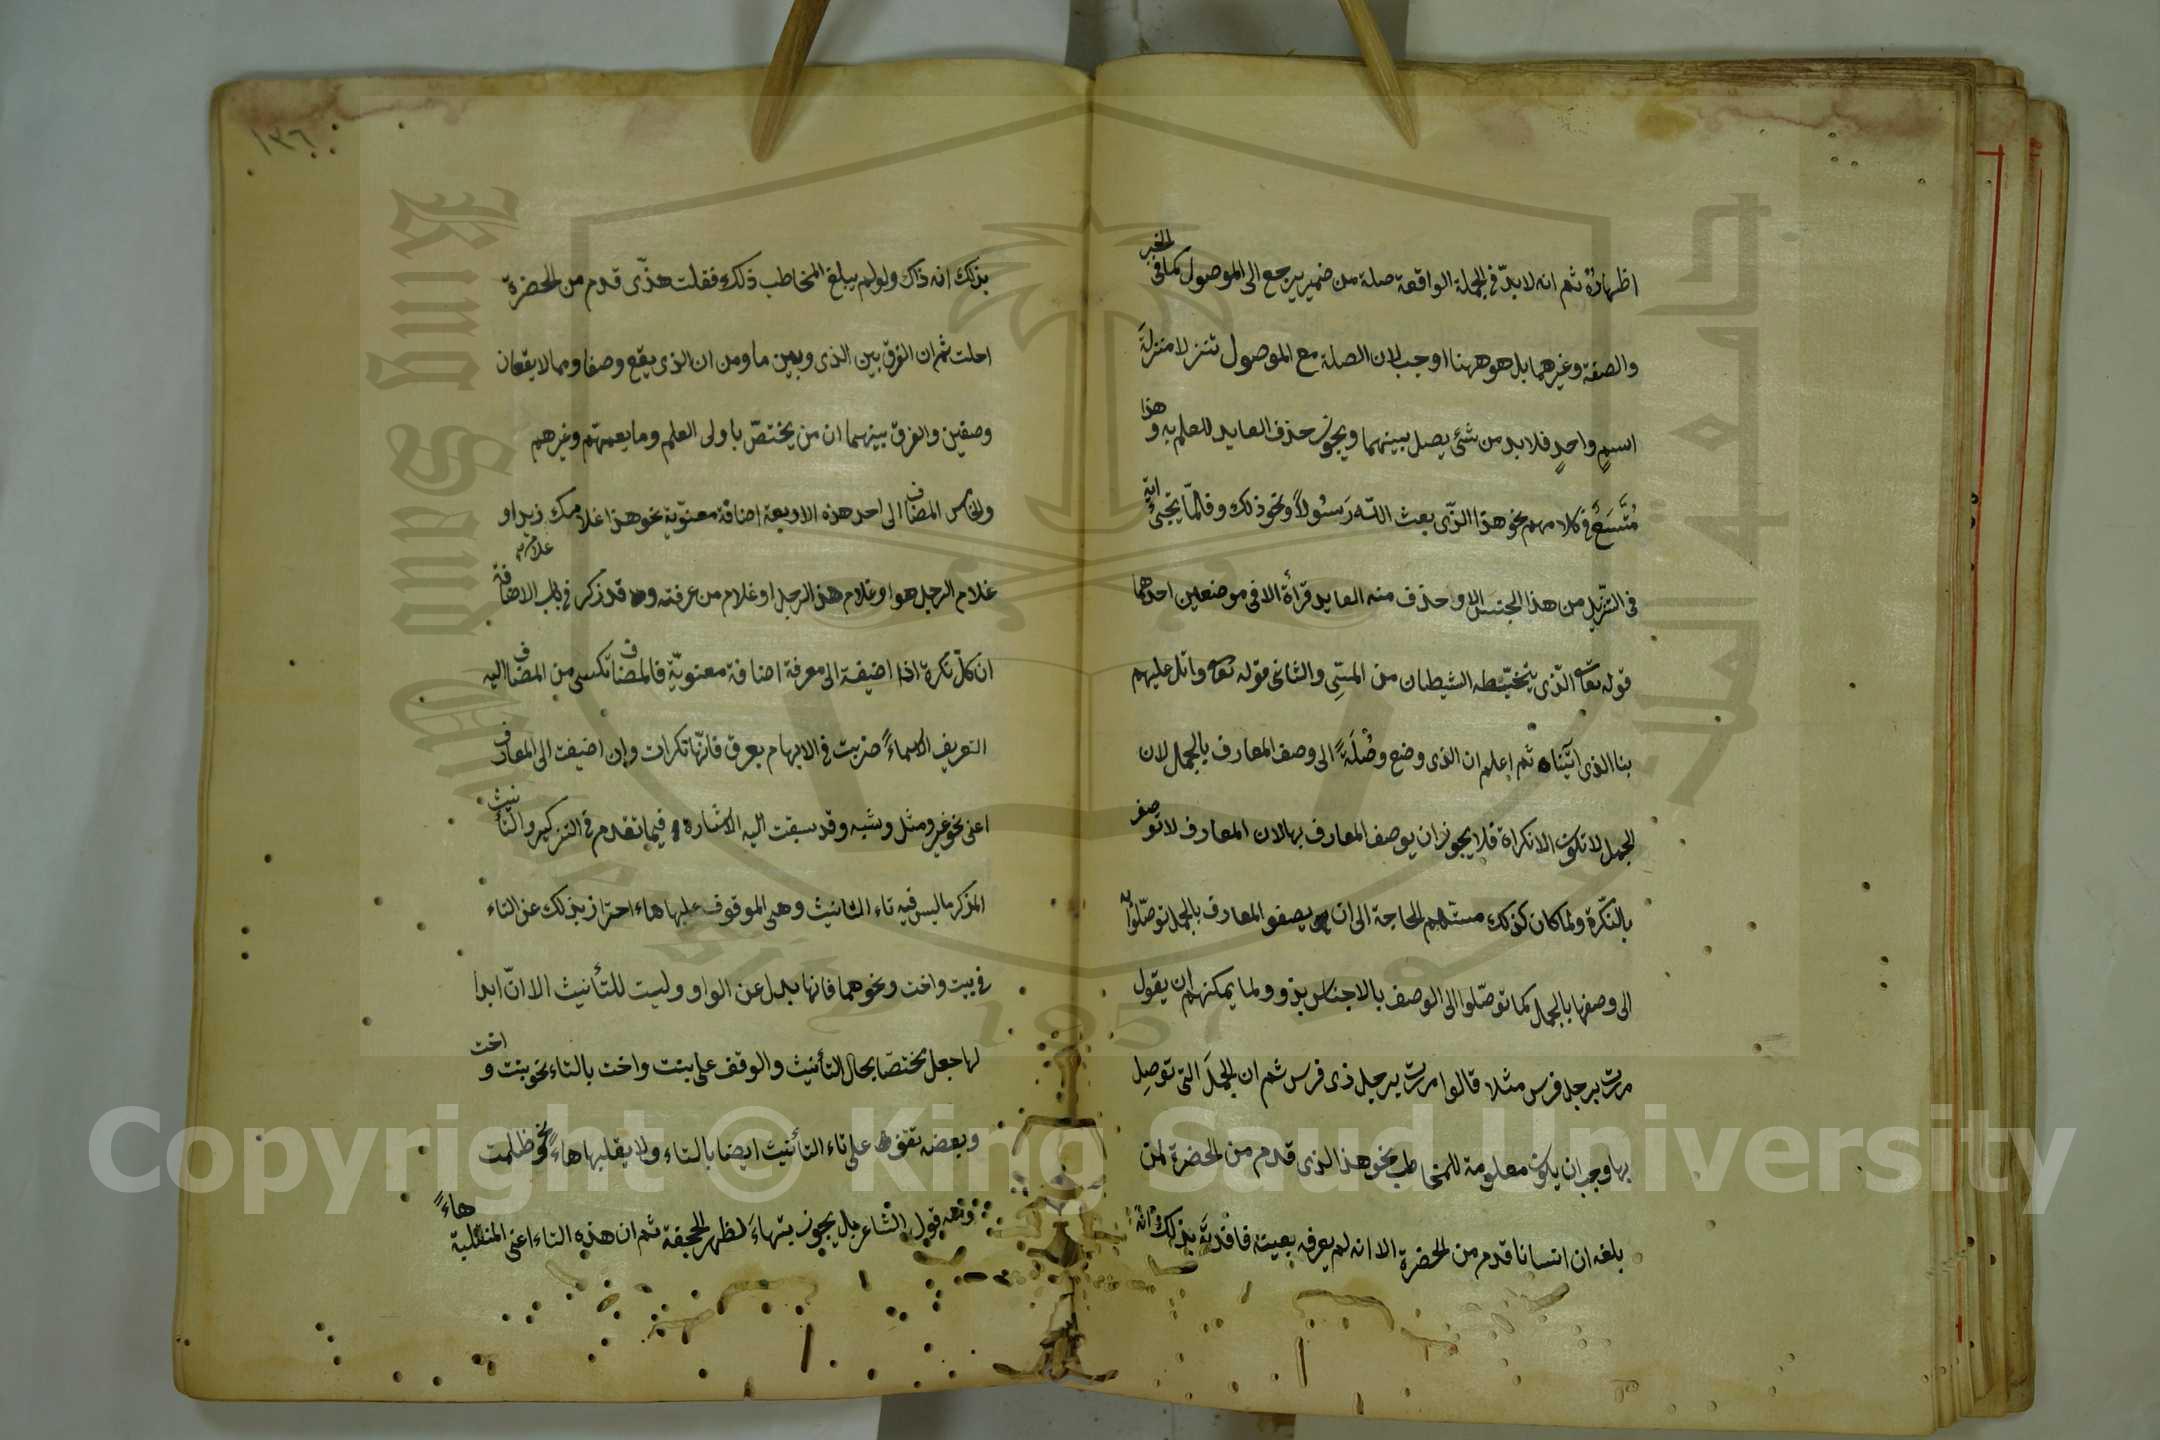 اظهاره ثم انه لابدّ في الجملة الواقعة صلة من ضمير يرجع الى الموصول كما في الخبر
والصفة وغيرهما بل هو ههنا اوجب لان الصلة مع الموصول تتنزلا منزلة
اسمٍ واحدٍ فلابد من شئ يصل بينهما ويجوز حذف العايد للعلم به وهذا
مُتَّسَعٌ في كلامهم نحو هذا الذّى بعث اللّه رَسُولاً ونحو ذلك وقلمّا يجئ آية
في التنزيل من هذا الجنس الا وحذف منه العايد قرأة الا في موضعين احدهما
قوله تعالى الذّى يتخبّطه الشيطان من المسِّ والثانى قوله تعالى واتل عليهم
بنا الذى آتيناه ثم اعلم ان الذى وضع وصُلَةً الى وصف المعارف بالجمل لان
الجمل لا تكون الا نكراة فلا يجوز ان يوصف المعارف بها لان المعارف لا توصف
بالنكّرة ولما كان كذلك مستهم الحاجة الى ان يصفو المعارف بالجمل توصّلوا به
الى وصفها بالجمل كما توصّلوا الى الوصف بالاجناس بذو ولما يمكنهم ان يقول
مررت برجل فرس مثلا قالوا مررت برجل ذى فرس ثم ان الجمَل التى توصِل
بها وجب ان يكون معلومة للمخاطب نحو هذا الذى قدم من الحضرة لمن
بلغه ان انسانا قدم من الحضرة الا انه لم يعرفه بعينه بذلك وانه
١٣٦
بذلك انه ذاك ولو لم يبلغ المخاطب ذلك فقلت هذّى قدم من الحضرة
احلت ثم ان الفرق بين الذى وبين ما ومن ان الذى يقع وصفا وهما لا يقعان
وصفين والفرق بينهما ان من يختصّ باولى العلم وما يعمهّم وغيرهم
والخامس المضاف الى احد هذه الاربعة اضافة معنوّية نحو هذا غلامك زيد او
غلام الرجل هو او غلام هذ الرجل او غلام من عرفته وقد ذكر في باب الاضافة
ان كلّ نكرة اذا اضيفة الى معرفة اضافة معنويّة فالمضاف تكسى من المضاف اليه
التعريف الا اسماءً ضربت في الابهام بعرق فانّها نكرات وإن اضيفت الى المعارف
اعنى نحو غير ومثل وشبه وقد سبقت اليه الاشارة فيما تقدم في التذكير والتأنيث
المذكر ما ليس فيه تاء التانيث وهى الموقوف عليها هاء احتراز بذلك عن التاء
في بيت واخت ونحوهما فانها بدل عن الواو وليست للتأنيث الا انّ ابدا
لها جعل مختصّا بحال التأنيث والوقف على بنت واخت بالتاء نحو بنت واخت
وبعضه تقف على تاء التأنيث ايضا بالتاء ولا يقلبها هاءً نحو ظلمت
قول الشاعر بل يجوز تيهاءَ لظهر الحجفة ثم ان هذه التاء اعنى المنقلبة هاءً